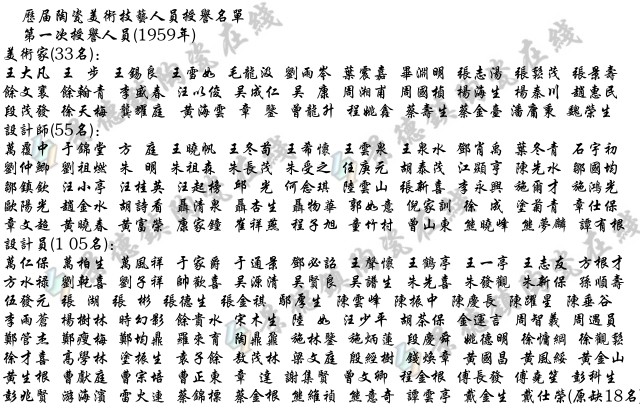 歷届陶瓷美術技藝人員授譽名單
第一次授譽人員(1959年)
美術家(33名):
王大凡 王 步 王錫良 王雲如 毛龍汲 劉雨岑 葉震嘉 畢淵明 張志湯 張鬆茂 張景壽
余文襄 余翰青 李盛春 汪以俊 吳成仁 吳 康 周湘甫 周國楨 楊海生 楊泰川 趙惠民
段茂發 徐天梅 龔耀庭 黃海雲 章 鑒 曾龍升 程姚盦 蔡壽生 蔡金臺 潘庸秉 魏榮生
設計師(55名):
萬履中 于錦堂 方 庭 王曉帆 王冬苟 王希懷 王雲泉 王泉水 鄧肖禹 葉冬青 石宇初
劉仲卿 劉祖燃 朱 明 朱祖森 朱長茂 朱受之 任庚元 胡泰茂 江顯亨 陳先水 鄒國均
鄒鎮欽 汪小亭 汪桂英 汪起榜 邱 光 何念琪 陸雲山 張新喜 李永興 施爾才 施鴻光
歐陽光 趙金水 胡詩看 聶清泉 聶杏生 聶物華 郭如意 倪家訓 徐 成 塗菊青 章仕保
章文超 黃曉春 黃富榮 康家鐘 崔祥燕 程子旭 童竹村 曾山東 熊曉峰 熊夢麟 譚有根
設計員(105名):
萬仁保 萬梅生 萬風祥 于家爵 于通景 鄧必詒 王聲懷 王鶴亭 王一亭 王志友 方根才
方水禄 劉乾喜 劉子祥 帥歡喜 吳源清 吳賢良 吳譜生 朱光喜 朱發觀 朱新保 孫順壽
伍發元 張 湖 張 彬 張德生 張金祺 鄢厚生 陳雲峰 陳振中 陳慶長 陳躍星 陳垂谷
李雨蒼 楊樹林 時幻影 餘貴水 宋木生 陸 如 汪少平 胡茶保 金運言 周智義 周遇員
鄭管杰 鄭瘦梅 鄭均鼎 羅朱育 陶鼎鼎 施林鑒 施炳蓮 段慶舜 姚德明 徐慵綱 徐毅鑒
徐才喜 高學林 塗振生 袁子餘 袁茂林 梁文庭 殷經樹 錢焕章 黃國昌 黃風綏 黃金山
黃生根 曹獻庭 曹宗培 曹正東 章 達 謝集賢 曾文卿 程金根 傅長發 傅堯笙 彭科生
彭兆賢 游海濱 雷火連 蔡錦標 蔡金根 熊維禎 熊意奇 譚雲亭 戴金生 戴仕榮(原缺18名)